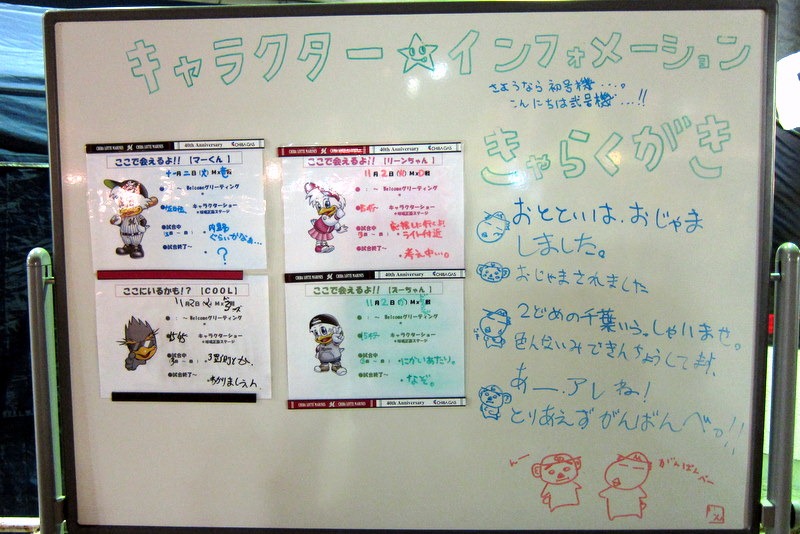 キャラクター☆インフォメーション
さようなら初号機…。
こんにちは弐号機…!!
きゃらくがき
CHIBA LOTTE MARINES
40th Anniversary
CHIBA GAS
ここで会えるよ!!【マーくん】
十一月二日(火)M×
●:～Welcomeグリーティング
キャラクターショー
●試合中
内野
ぐらいかなぁ…
●試合終了～
?
CHIBA LOTTE MARINES
40th Anniversary
CHIBA GAS
ここで会えるよ!!【リーンちゃん】
11月2日(火)M×D戦
●:～Welcomeグリーティング
キャラクターショー
●試合中
ライト付近
●試合終了～
・考え中…。
ここにいるかも!?【COOL】
11月2日(火)M×
●:～Welcomeグリーティング
キャラクターショー
●試合中
●試合終了～
・わかりましぇん
CHIBA LOTTE MARINES
40th Anniversary
CHIBA GAS
ここで会えるよ!!【ズーちゃん】
11月2日(火)M×
●:～Welcomeグリーティング
キャラクターショー
●試合中
・にかいあたり。
●試合終了～
・なぞ。
CHIBA LOTTE MARINES
40th Anniversary
CHIBA GAS
おとといは、おじゃま
しました。
おじゃまされました
2どめの千葉いらっしゃいませ。
色んないみできんちょうしてます、
あー、アレね!
とりあえずがんばんべっ!!
がんばんべー